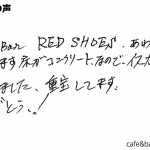 の声
Bar RED SHOES. あわ
ます床がコンクリートなので、イスカ
ました、重宝してます。
どう、、!
cafe&ba